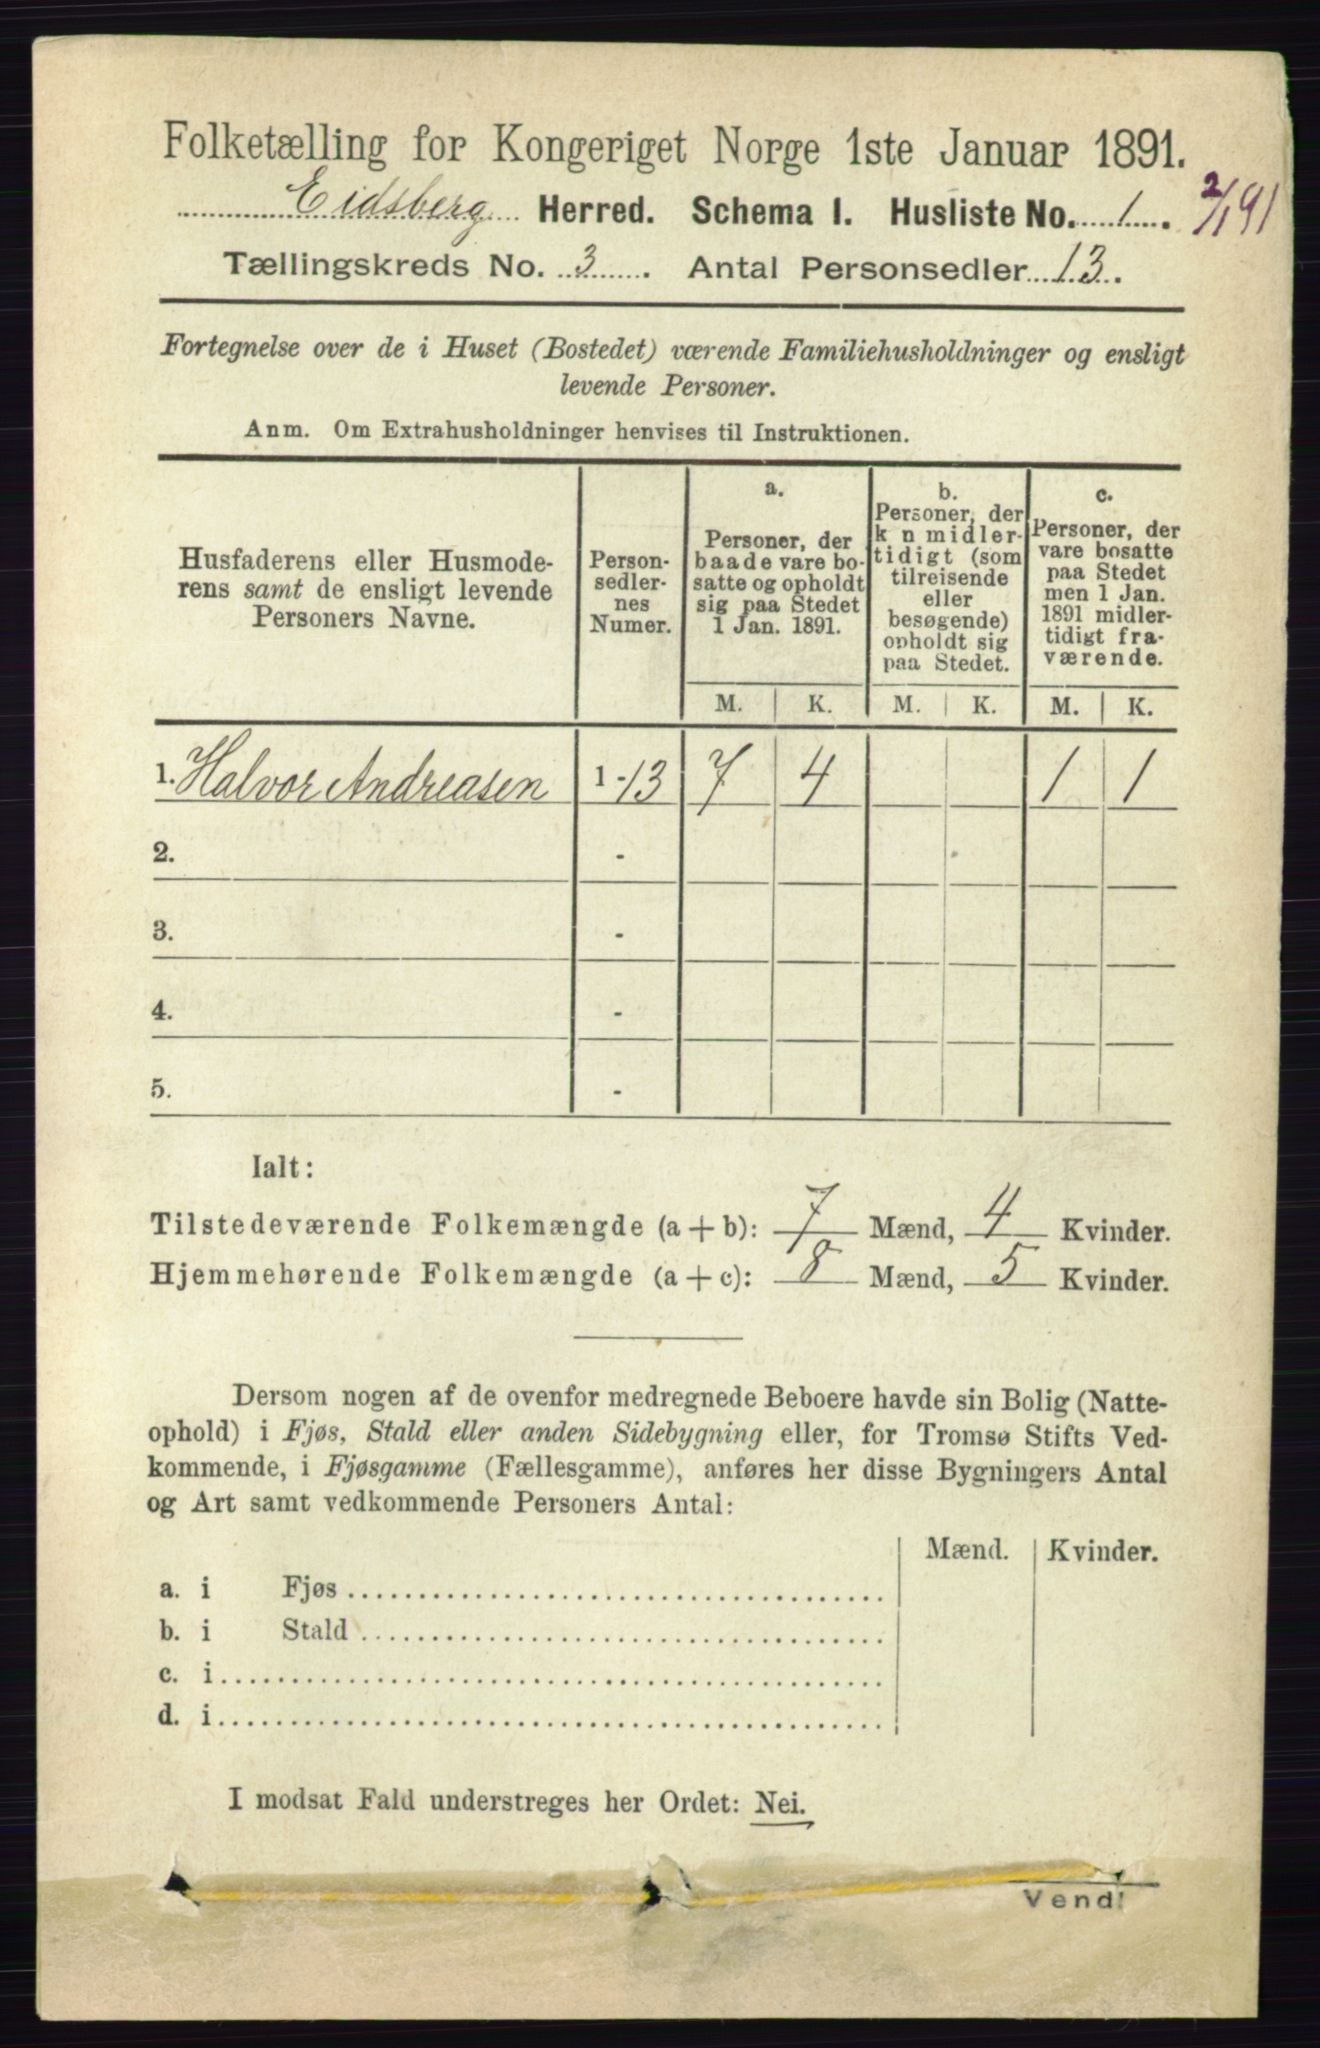 Folketælling for Kongeriget Norge 1ste Januar 1891.
Eidsberg Herred. Schema I. Husliste No. 1. 2/1 91
Tællingskreds No. 3. Antal Personsedler 13.
Fortegnelse over de i Huset (Bostedet) værende Familiehusholdninger og ensligt
levende Personer.
Anm. Om Extrahusholdninger henvises til Instruktionen.
Husfaderens eller Husmode-
rens samt de ensligt levende
Personers Navne.
Person-
sedler-
nes
Numer.
a.
Personer, der
baade vare bo-
satte og opholdt
sig paa Stedet
1 Jan. 1891.
b.
Personer, der
k n midler-
tidigt (som
tilreisende
eller
besøgende)
opholdt sig
paa Stedet.
c.
Personer, der
vare bosatte
paa Stedet
men 1 Jan.
1891 midler-
tidigt fra-
værende.
M. K. M. K. M. K.
1. Halvor Andreasen 1-13 7 4 1 1
2. -
3. -
4. -
5. -
Ialt:
Tilstedeværende Folkemængde (a + b): 7 Mænd, 4 Kvinder.
Hjemmehørende Folkemængde (a + c): 8 Mænd, 5 Kvinder.
Dersom nogen af de ovenfor medregnede Beboere havde sin Bolig (Natte-
ophold) i Fjøs, Stald eller anden Sidebygning eller, for Tromsø Stifts Ved-
kommende, i Fjøsgamme (Fællesgamme), anføres her disse Bygningers Antal
og Art samt vedkommende Personers Antal:
Mænd. Kvinder.
a. i Fjøs
b. i Stald
c. i
d. i
I modsat Fald understreges her Ordet: Nei.
Vend!